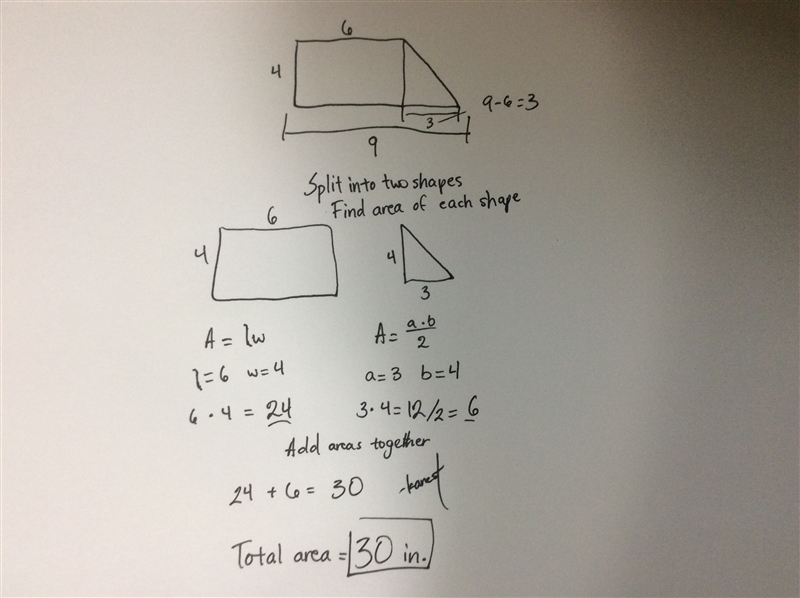 6
4
9-6=3
3
9
Split into two shapes
Find area of each shape
6
4
4
3
A = lw
A = a·b/2
l=6 w=4
a=3 b=4
6 · 4 = 24
3·4=12/2=6
Add areas together
24 + 6 = 30
Total area = 30 in.